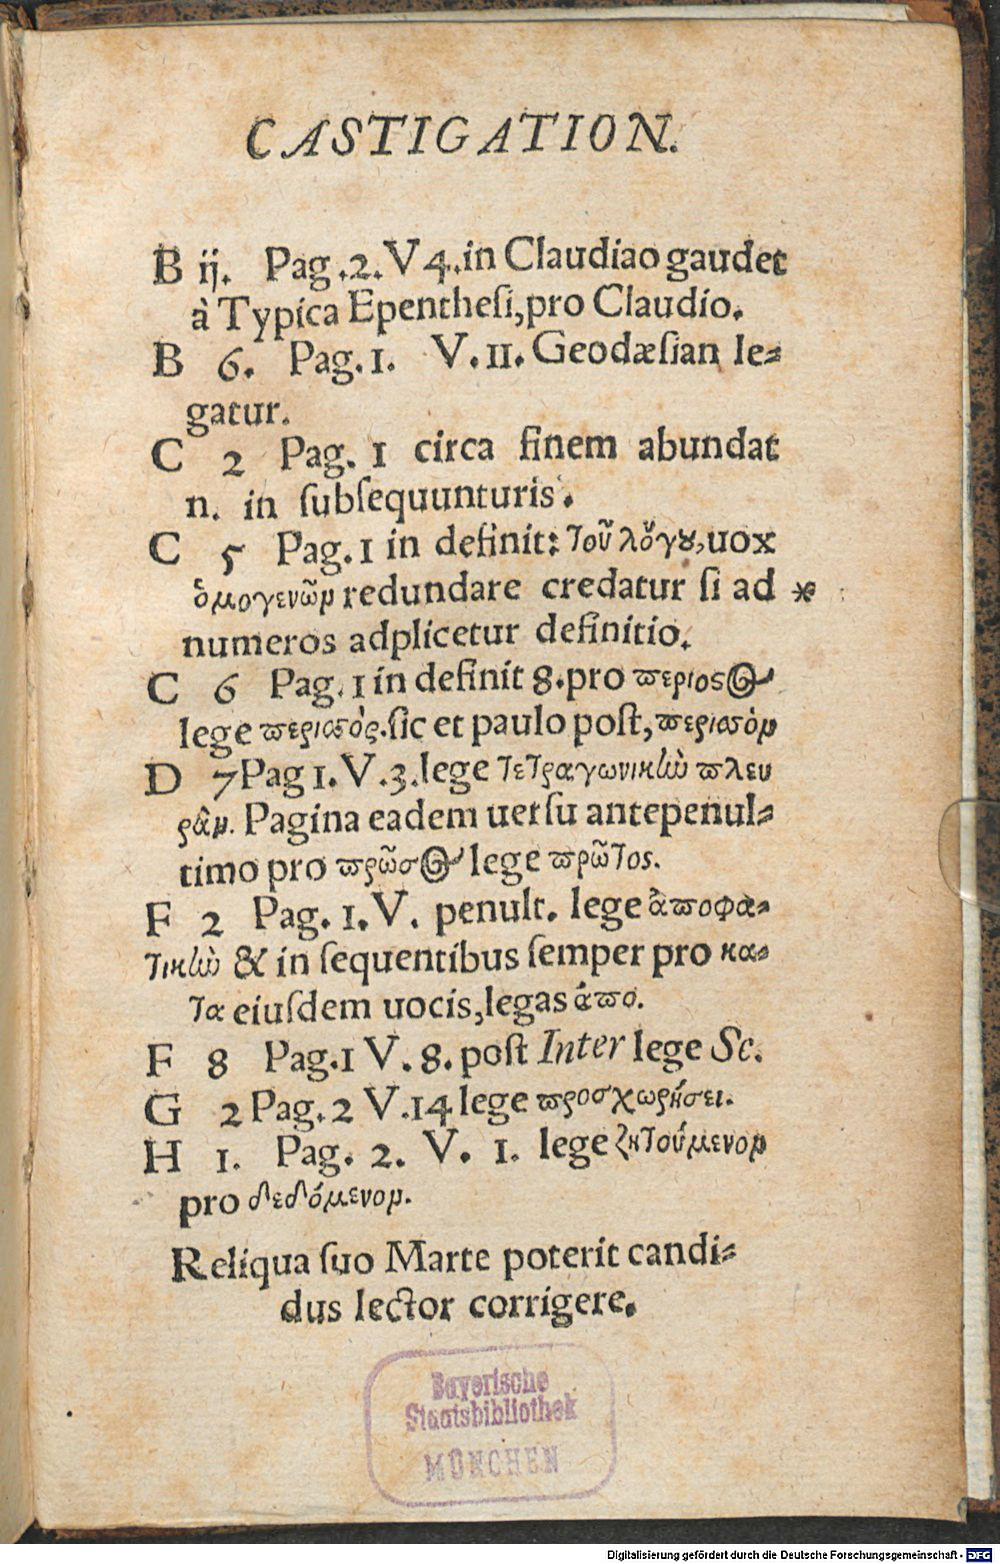 CASTIGATION.
B ij. Pag.2. V 4. in Claudiao gaudet
à Typica Epenthesi, pro Claudio.
B 6. Pag. 1. V. 11. Geodæsian le-
gatur.
C 2 Pag. 1 circa finem abundat
n. in subsequunturis.
C 5 Pag. 1 in definit: τοῦ λόγου, uox
ὁμογενῶν redundare credatur si ad *
numeros adplicetur definitio.
C 6 Pag. 1 in definit 8. pro περιοςος
lege περισσὸς. sic et paulo post, περισσὸν
D 7 Pag 1. V. 3. lege τετραγωνικὴν πλευ
ρὰν. Pagina eadem uersu antepenul-
timo pro πρῶσος lege πρῶτος.
F 2 Pag. 1. V. penult. lege ἀποφα-
τικὴν & in sequentibus semper pro κα-
τα eiusdem uocis, legas ἀπο.
F 8 Pag. 1 V. 8. post Inter lege Sc.
G 2 Pag. 2 V. 14 lege προσχωρήσει.
H 1. Pag. 2. V. 1. lege ζητούμενον
pro δεδόμενον.
Reliqua suo Marte poterit candi-
dus lector corrigere.
Bayerische
Staatsbibliothek
MÜNCHEN
Digitalisierung gefördert durch die Deutsche Forschungsgemeinschaft - DFG